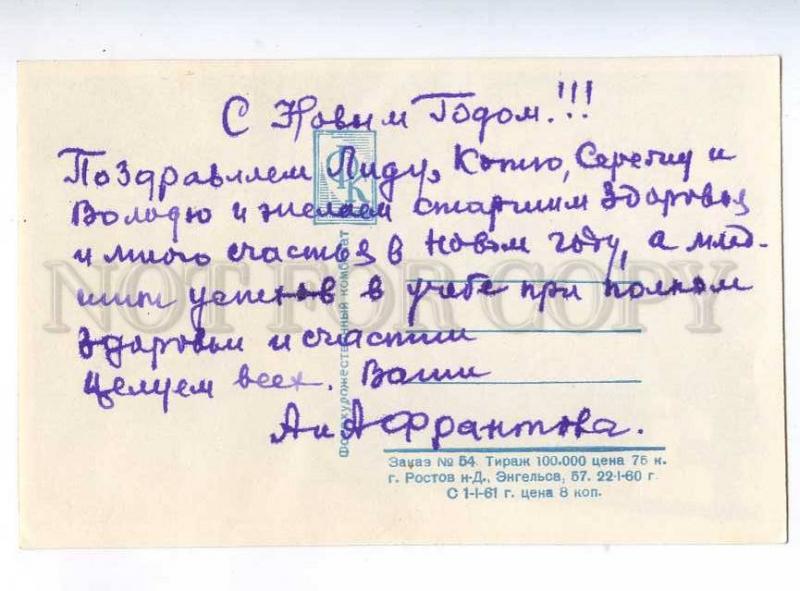 С Новым Годом.!!!
Поздравляем Лиду, Катю, Сережу и
Володю и желаем старшим здоровья
и много счастья в Новом году, а млад-
шим успехов в учебе при полном
здоровьи и счастии
Целуем всех. Ваши
А и А Франтова.
ФК
Фотохудожественный комбинат
Заказ № 54. Тираж 100.000 цена 75 к.
г. Ростов н-Д., Энгельса, 57. 22-I-60 г.
С 1-I-61 г. цена 8 коп.
NOT FOR COPY